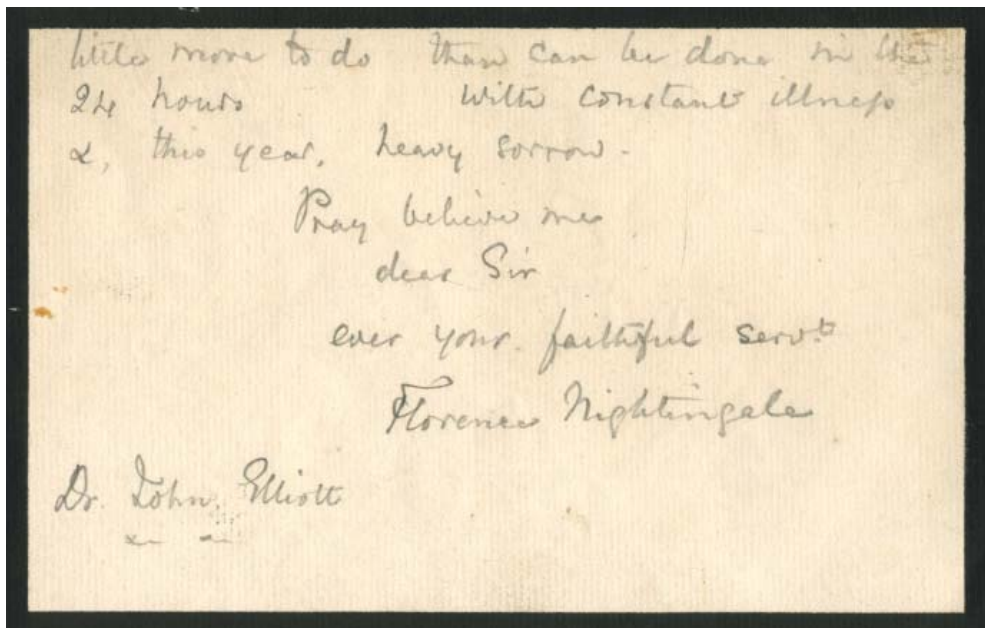 little more to do than can be done in the
24 hours with constant illness
&, this year, heavy sorrow.
Pray believe me
dear Sir
ever your faithful serv.t
Florence Nightingale
Dr. John Elliott